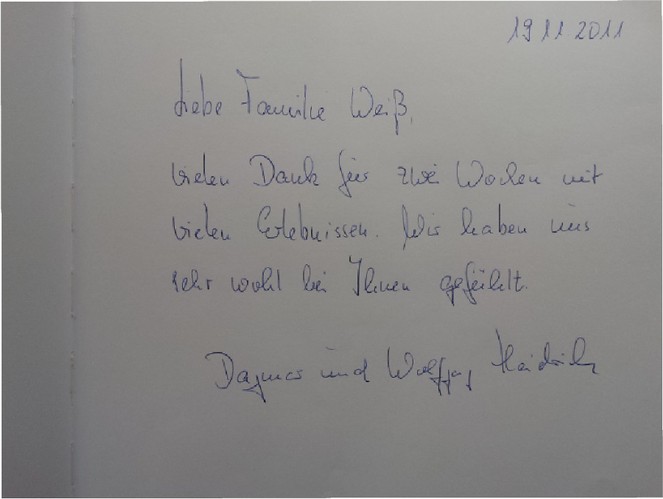 19 11 2011
Liebe Familie Weiß,
vielen Dank für zwei Wochen mit
vielen Erlebnissen. Wir haben uns
sehr wohl bei Ihnen gefühlt.
Dagmar und Wolfgang Heidrich